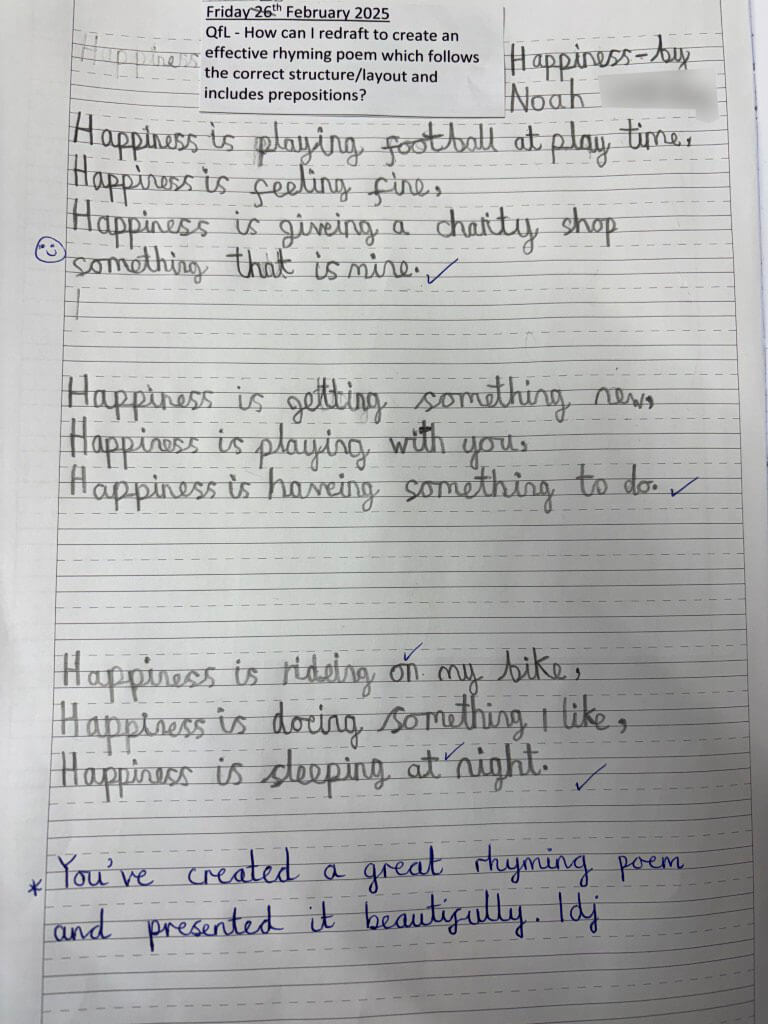 Friday 26th February 2025
QfL - How can I redraft to create an
effective rhyming poem which follows
the correct structure/layout and
includes prepositions?
Happiness
Happiness-by
Noah
Happiness is playing football at play time,
Happiness is feeling fine,
Happiness is giveing a charity shop
something that is mine.
Happiness is getting something new,
Happiness is playing with you,
Happiness is haveing something to do.
Happiness is rideing on my bike,
Happiness is doeing something I like,
Happiness is sleeping at night.
* You've created a great rhyming poem
and presented it beautifully. 1dj